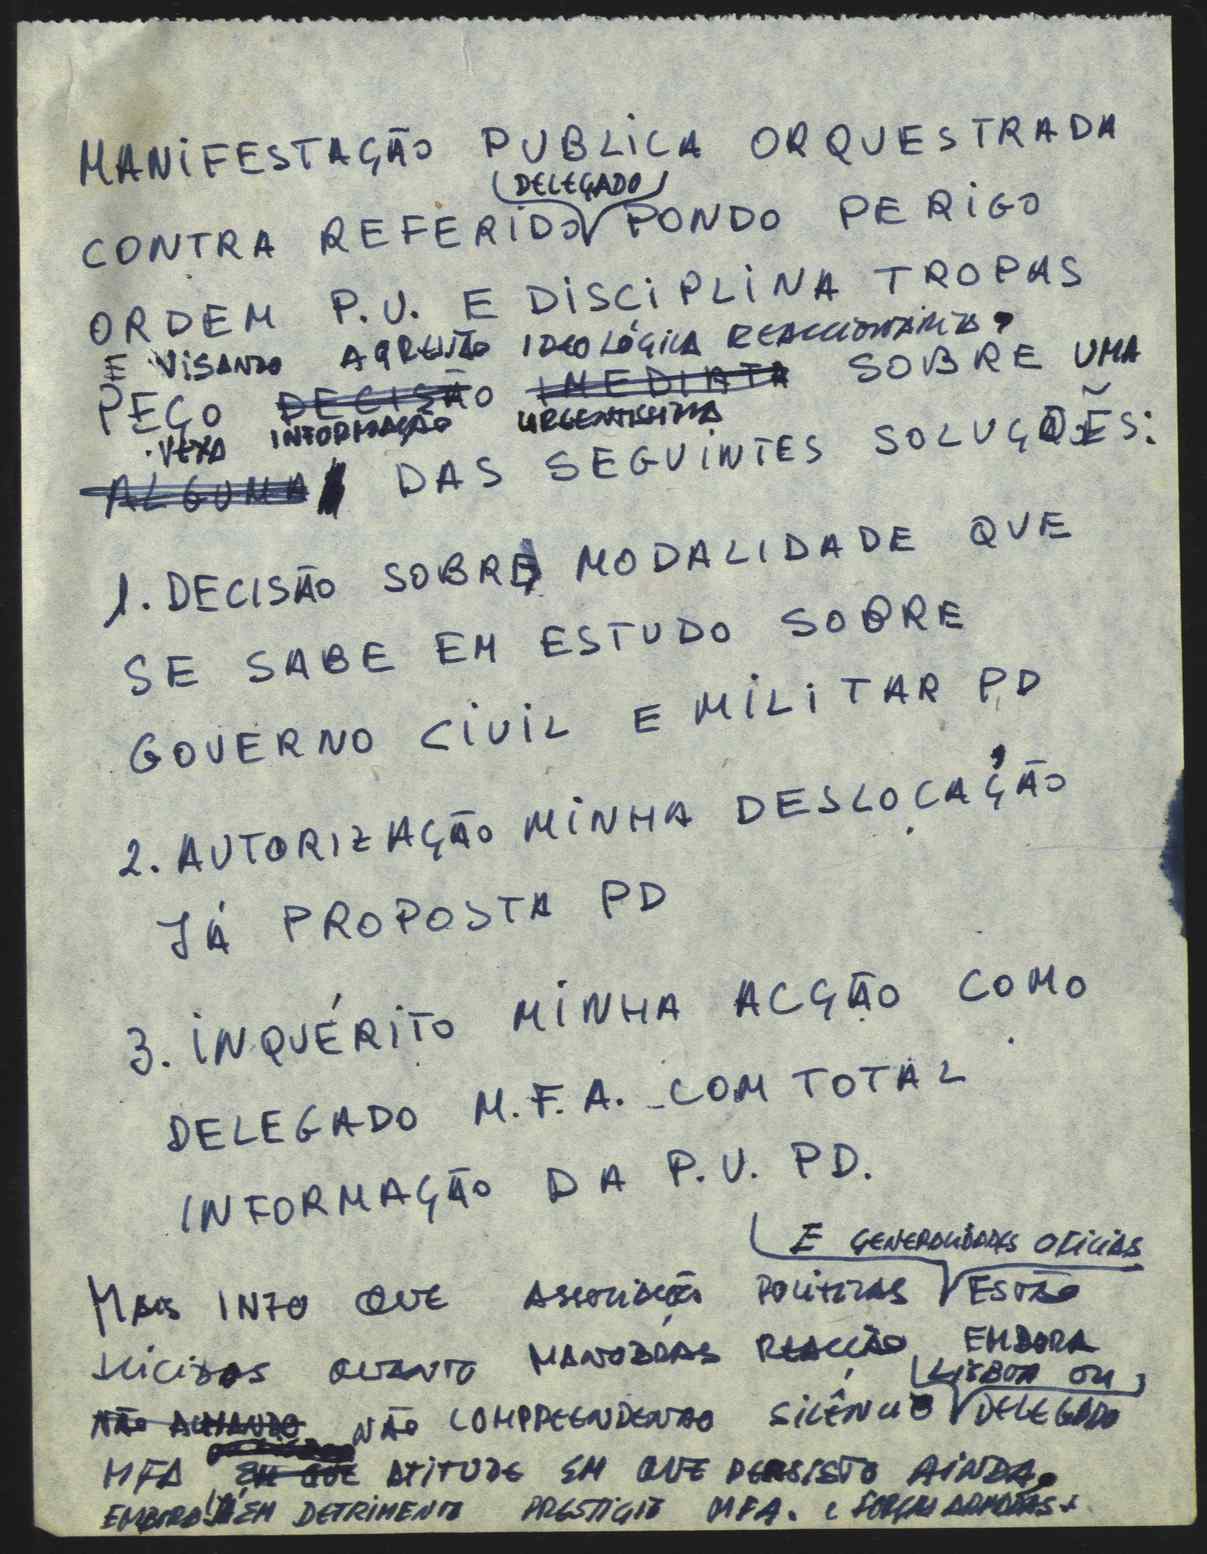 MANIFESTAÇÃO PUBLICA ORQUESTRADA
DELEGADO
CONTRA REFERIDO PONDO PERIGO
ORDEM P.U. E DISCIPLINA TROPAS
E VISANDO AGRESSÃO IDEOLÓGICA REACCIONÁRIA.
PEÇO DECISÃO IMEDIATA SOBRE UMA
VEXA INFORMAÇÃO URGENTISSIMA
ALGUMA DAS SEGUINTES SOLUÇÕES:
1. DECISÃO SOBRE MODALIDADE QUE
SE SABE EM ESTUDO SOBRE
GOVERNO CIVIL E MILITAR PD
2. AUTORIZAÇÃO MINHA DESLOCAÇÃO
JÁ PROPOSTA PD
3. INQUÉRITO MINHA ACÇÃO COMO
DELEGADO M.F.A. COM TOTAL
INFORMAÇÃO DA P.U. PD.
E GENERALIDADES OFICIAIS
MAIS INFO QUE ASSOCIAÇÕES POLITICAS ESTÃO
QUANTO MANOBRAS REACÇÃO EMBORA
LISBOA OU
NÃO NÃO COMPREENDENDO SILÊNCIO DELEGADO
MFA EM QUE ATITUDE EM QUE PERSISTO AINDA,
EMBORA JÁ EM DETRIMENTO PRESTIGIO MFA. E FORÇAS ARMADAS.